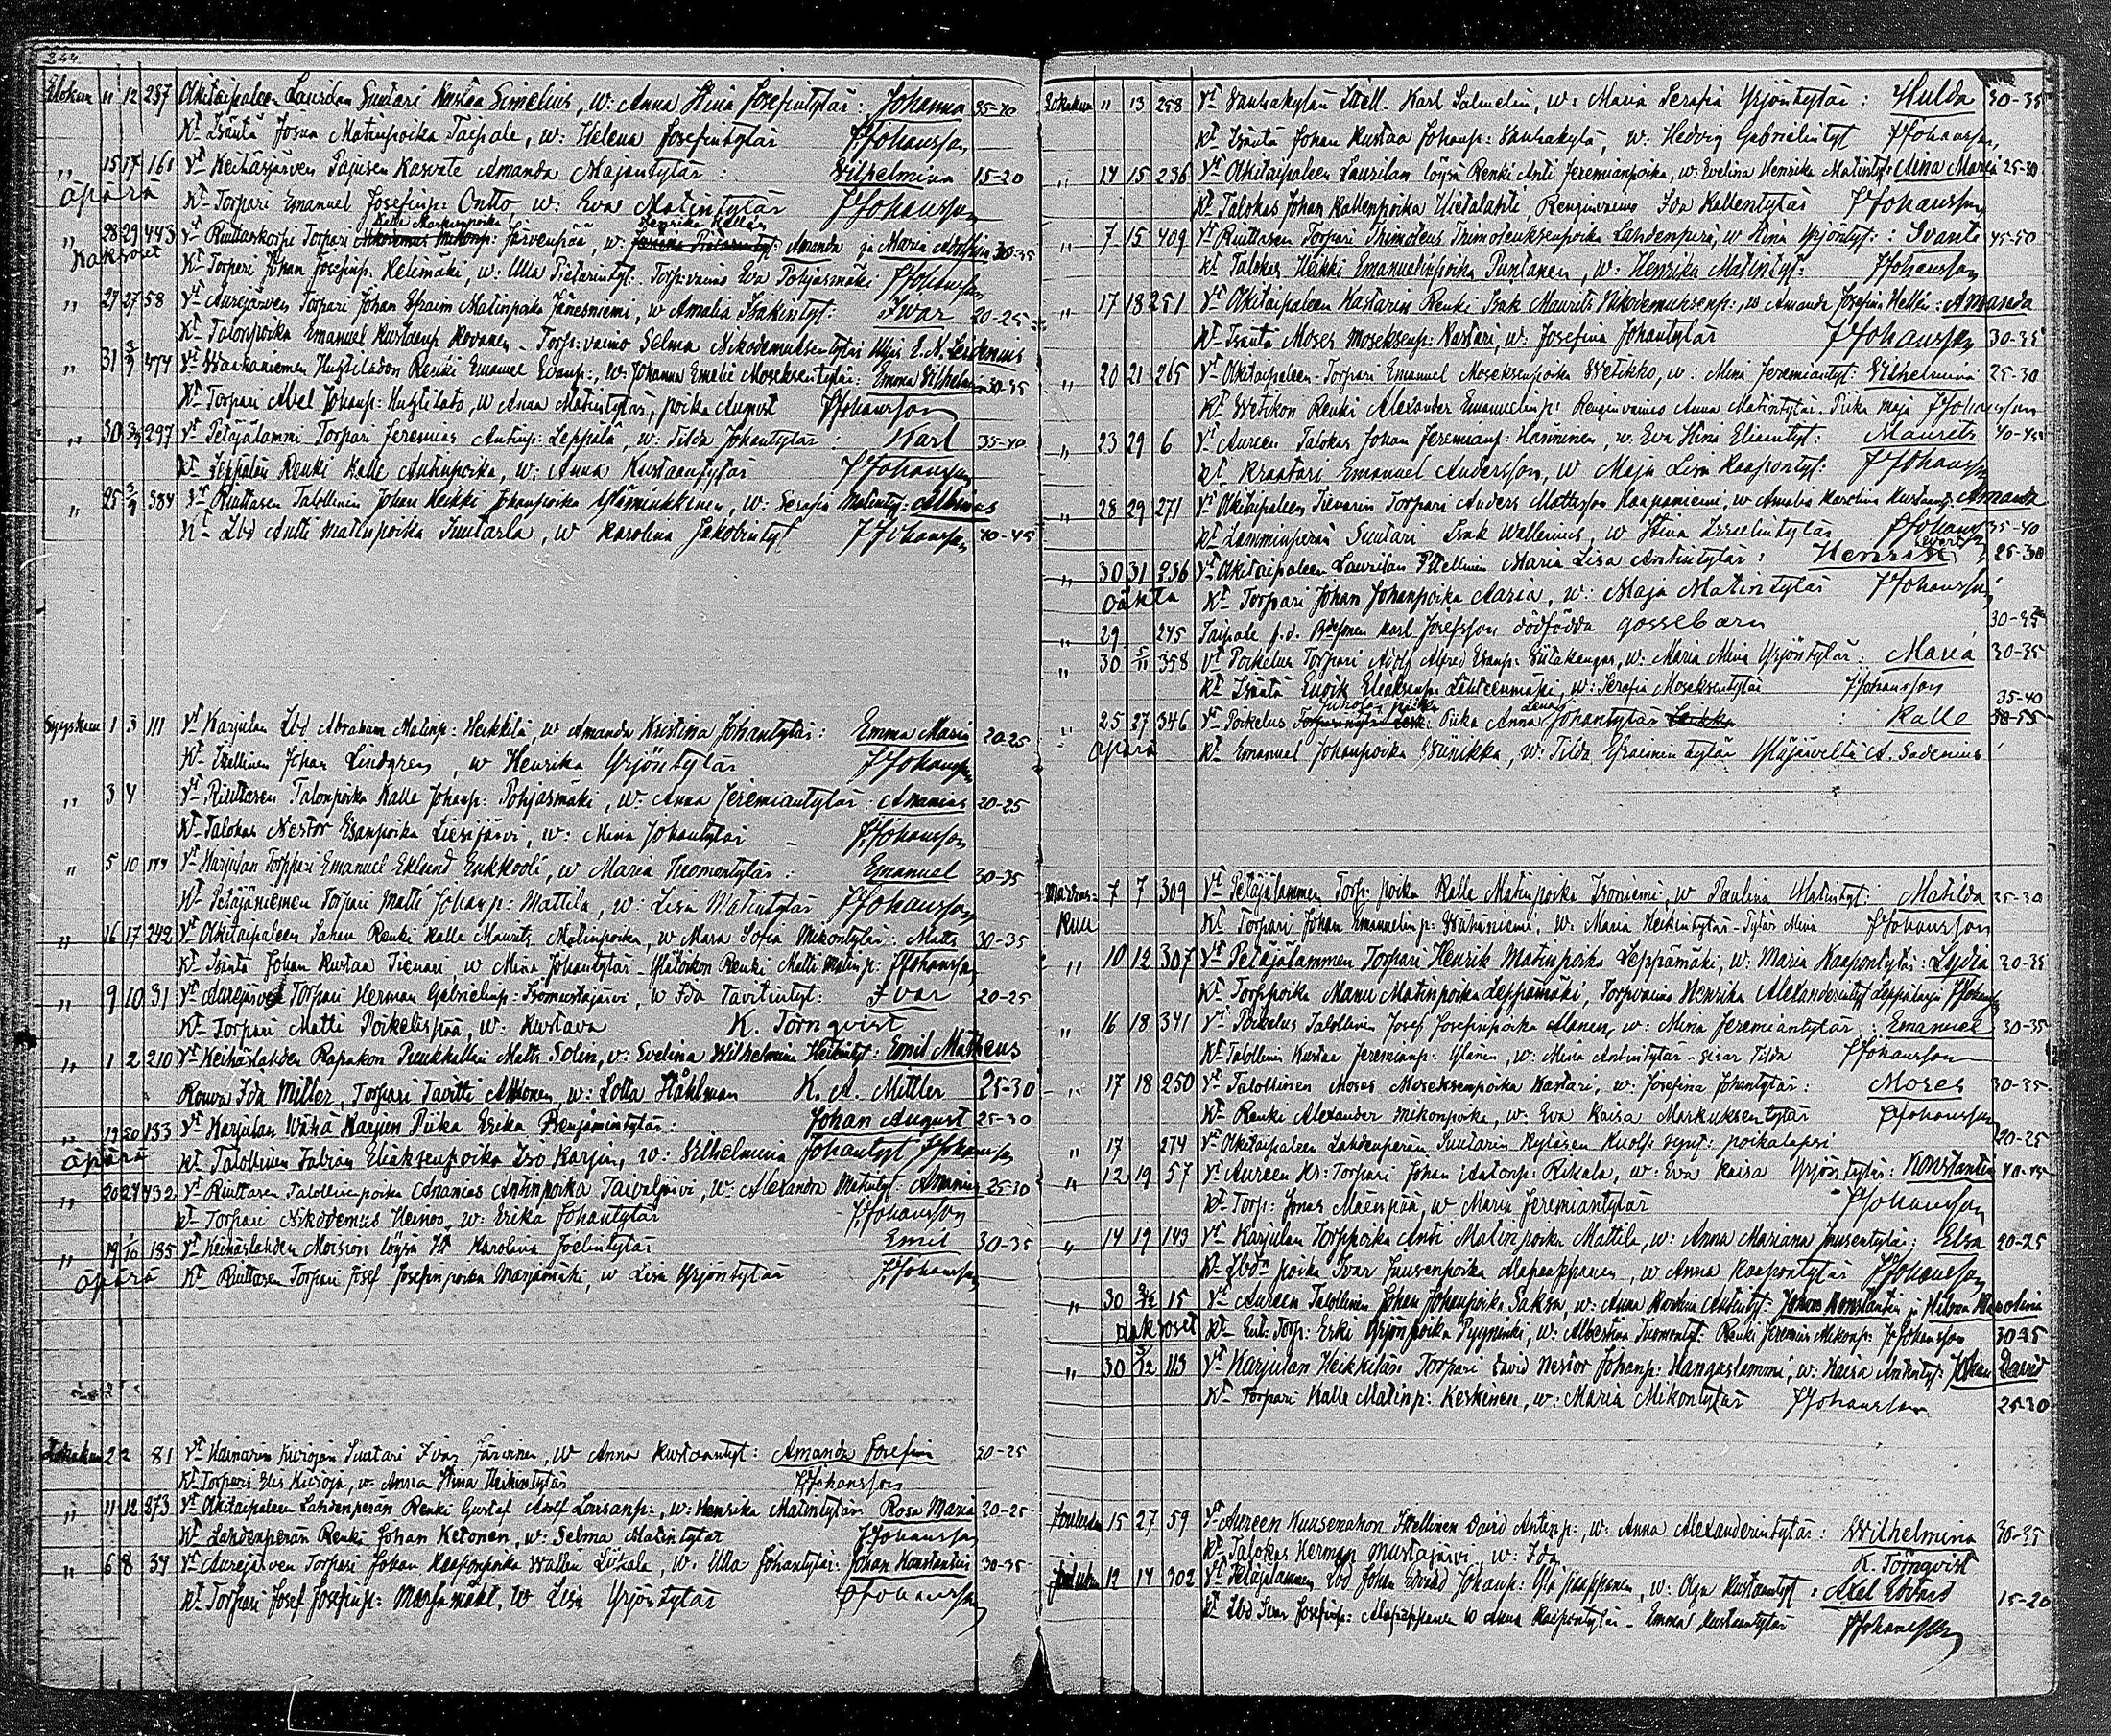 244
Elokuu 11 12 237 Okitaipaleen Laurilan Suutari Kustaa Senelius, w: Anna Stina Josefintytär: Johanna 35-40
Kt Isäntä Josua Matinpoika Taipale, w: Helena Josefintytär JJohansson
" 15 17 161 Vt Keihäsjärven Pajusen Kasvate Amanda Majantytär: Wilhelmina 15-20
äpärä Kt Torpari Emanuel Josefinp: Ontto w: Eva Matintytär JJohansson
Kalle Markunpoika Henrika Hellän
" 28 29 443 Vt Riuttaskorpi Torpari Järvenpää, w: Amanda ja Maria 30-35
Kaksoset Kt Torpari Johan Josefinp. Helimäki, w: Ulla Pietarintyt. Torp:vaimo Eva Pohjasmäki JJohansson
" 27 27 58 Vt Aurejärven Torpari Johan Efraim Matinpoika Jänesniemi, w Amalia Isakintyt: Ivar 20-25
Kt Talonpoika Emanuel Kustaanp Kovanen - Torp: vaimo Selma Nikodemuksentytär
" 31 3/9 474 Vt Waakaniemen Huhtiladon Renki Emanuel Evanp:, w: Johanna Emelie Moseksentytär: Emma Wilhelmina 30-35
Kt Torpari Abel Johanp: Huhtilato, w Anna Matintytär, poika August JJohansson
" 30 297 Vt Petäjälammi Torpari Jeremias Antinp: Leppälä, w: Tilda Johantytär: Karl 35-40
Kt Leppälän Renki Kalle Antinpoika, w: Anna Kustaantytär JJohansson
" 25 3/9 384 Vt Riuttasen Talollinen Johan Heikki Johanpoika w: Serafia Matinty: Albinus
Kt Lbd Antti Matinpoika Suutarla, w Karolina Jakobintyt JJohansson 40-45
Syyskuu 1 3 111 Vt Karjulan Lbd Abraham Matinp: Heikkilä, w Amanda Kristina Johantytär: Emma Maria 20-25
Kt Itsellinen Johan Lindgren, w Henrika Yrjöntytär JJohansson
" 3 4 Vt Riuttasen Talonpoika Kalle Johanp: Pohjasmäki, w: Anna Jeremiantytär: Ananias 20-25
Kt Talokas Nestor Esanpoika Liesijärvi, w: Mina Johantytär - JJohansson
" 5 10 144 Vt Karjulan Torppari Emanuel Eklund Enkkooli, w Maria Tuomontytär: Emanuel 30-35
Kt Petäjäniemen Torpari Matti Johanp: Mattila, w: Lisa Matintytär JJohansson
" 16 17 242 Vt Okitaipaleen Sahan Renki Kalle Maurits Matinpoika, w Maria Sofia Mikontytär: Matts 30-35
Kt Isäntä Johan Kustaa Tienari, w Mina Johantytär - Renki Matti Matinp: JJohansson
" 9 10 31 Vt Aurejärven Torpari Herman Gabrielinp: Isomustajärvi, w Ida Tavitintyt: Ivar 20-25
Kt Torpari Matti Poikelispää, w: Kustava K. Törnqvist
" 1 2 210 Vt Keihäslahden Rapakon Puukkallan Matts Solin, w: Evelina Wilhelmina Heikintyt: Emil Matheus
Rouva Ida Miller, Torpari Tavitti Ahtonen w: Lotta Ståhlman K. A. Mittler 25-30
" 19 20 133 Vt Karjulan Wähä Karjun Piika Erika Benjamintytär: Johan August 25-30
äpärä Kt Talollinen Fabian Eliaksenpoika Iso Karjun, w: Wilhelmina Johantyt JJohansson
" 20 24 432 Vt Riuttasen Talollisenpoika Ananias Antinpoika Taivaljärvi, w: Alexandra Matintyt: Ananias 25-30
Kt Torpari Nikodemus Heinoo, w: Erika Johantytär JJohansson
" 19 1/10 185 Vt Keihäslahden Moision löysä Karolina Joelintytär Emil 30-35
äpärä Kt Riuttasen Torpari Josef Josefinpoika Marjamäki, w Lisa Yrjöntytär JJohansson
Lokakuu 2 2 81 Vt Kainarin Kivisojan Suutari Ivar Järvinen, w Anna Kustaantyt: Amanda Josefina 20-25
Kt Torpari Elis Kivioja, w: Anna Stina Heikintytär JJohansson
" 11 12 273 Vt Okitaipaleen Lahdenperän Renki Gustaf Adolf Lassanp:, w: Henrika Matintytär: Rosa Maria 20-25
Kt Lahdenperän Renki Johan Ketonen, w: Selma Matintytär JJohansson
" 6 8 34 Vt Aurejärven Torpari Johan Kaaponpoika Liikala, w. Ulla Johantytär: Johan Konstantin 30-35
Kt Torpari Josef Josefinp: Marjamäki, w Lisa Yrjöntytär JJohansson
Lokakuu " 13 258 Vt Vanhakylän Itsell. Karl Salmelin, w: Maria Serafia Yrjöntytär: Hulda 30-35
Kt Isäntä Johan Kustaa Johanp: Vanhakylä, w: Hedvig Gabrielintyt JJohansson
" 14 15 236 Vt Okitaipaleen Laurilan löysä Renki Anti Jeremianpoika, w: Evelina Henrika Matintyt: Aina Maria 25-30
Kt Talokas Johan Kallenpoika Hietalahti, Renginvaimo Ida Kallentytär JJohansson
" 7 15 409 Vt Riuttasen Torpari Thimoteus Thimoteuksenpoika Lahdenperä, w Stina Yrjöntyt: Svante 45-50
Kt Talokas Heikki Emanuelinpoika Puntanen, w: Henrika Matintyt: JJohansson
" 17 18 251 Vt Okitaipaleen Kastarin Renki Isak Maurits Nikodemuksenp:, w Amanda Josefina Hellän: Amanda
Kt Isäntä Moses Moseksenp: Kastari, w: Josefina Johantytär JJohansson 30-35
" 20 21 265 Vt Okitaipaleen Torpari Emanuel Moseksenpoika Wetikko, w: Mina Jeremiantyt: Wilhelmina 25-30
Kt Wetikon Renki Alexander Emanuelinp: Renginvaimo Anna Matintytär. Piika Maja JJohansson
" 23 29 6 Vt Aureen Talokas Johan Jeremianp: Hänninen, w. Eva Stina Eliaantyt: Maurits 40-45
Kt Kraatari Emanuel Andersson, w Maja Lisa Kaapontyt: JJohansson
" 28 29 271 Vt Okitaipaleen Tienarin Torpari Anders Mattsson Haapaniemi, w Amalia Karolina Kustaanp: Amanda
Kt Lamminperän Suutari Isak Wallenius, w Stina Israelintytär JJohansson 35-40
" 30 31 236 Vt Okitaipaleen Laurilan Itsellinen Maria Lisa Antintytär: Henrik 25-30
äpärä Kt Torpari Johan Johanpoika Aaria, w: Maja Matintytär JJohansson
" 29 245 Taipale f.d. Karl Josefsson dödfödda gossebarn 30-35
" 30 5/11 358 Vt Poikelus Torpari Adolf Alfred Esanp: Siltakangas, w: Maria Mina Yrjöntytär: Maria 30-35
Kt Isäntä Enoik Eliaksenp: Lähteenmäki, w: Serafia Moseksentytär JJohansson
" 25 27 346 Vt Poikelus Piika Anna Johantytär: Kalle 35-40
äpärä Kt Emanuel Johanpoika Wünikka, w: Tilda Efraimintytär A. Sadenius
Marras- 7 7 309 Vt Petäjälammen Torp: poika Kalle Matinpoika Isoniemi, w Paulina Matintyt: Matilda 25-30
kuu Kt Torpari Johan Emanuelinp: Wähäniemi, w: Maria Heikintytär - Tytär Mina JJohansson
" 10 12 307 Vt Petäjälammen Torpari Henrik Matinpoika Leppämäki, w: Maria Kaapontytär: Lydia 30-35
Kt Torppoika Manu Matinpoika Leppämäki, Torpvaimo Henrika Alexanderintyt JJohansson
" 16 18 341 Vt Poikelus Talollinen Josef Josefinpoika Alanen, w: Mina Jeremiantytär: Emanuel 30-35
Kt Talollinen Kustaa Jeremianp: Ylänen, w: Mina Antintytär - sisar Tilda JJohansson
" 17 18 250 Vt Talollinen Moses Moseksenpoika Kastari, w: Josefina Johantytär: Moses 30-35
Kt Renki Alexander Mikonpoika, w: Eva Kaisa Markuksentytär JJohansson
" 17 274 Vt Okitaipaleen Lahdenperän Suutarin Kyläsen Kuoll: synt: poikalapsi 20-25
" 12 19 57 Vt Aureen Kr: Torpari Johan Antonp: Rihala, w: Eva Kaisa Yrjöntytär: Konstantin 40-45
Kt Torp: Jonas Mäenpää, w Maria Jeremiantytär JJohansson
" 14 19 143 Vt Karjulan Torppoika Anti Matinpoika Mattila, w: Anna Mariana Juusentytär: Elsa 20-25
Kt Lbdn poika Ivar Juusenpoika Alapaappanen, w Anna Kaapontytär JJohansson
" 30 2/12 15 Vt Aureen Talollinen Johan Johanpoika Saksa, w: Anna Karolina Antintyt: Johan Konstantin ja Hilma Karolina
kaksoset Kt Ent: Torp: Erki Yrjönpoika Pyyninki, w: Albertina Tuomontyt: Renki Jeremias Mikonp: JJohansson 30-35
" 30 3/12 113 Vt Karjulan Heikkilän Torpari David Nestor Johanp: Hangaslammi, w: Kaisa Antintyt: Johan David
Kt Torpari Kalle Matinp: Keskinen, w: Maria Mikontytär JJohansson 25-30
Joulukuu 15 27 59 Vt Aureen Kuusenahon Itsellinen David Antinp:, w: Anna Alexanderintytär: Wilhelmina 30-35
Kt Talokas Herman Mustajärvi w: Ida K. Törnqvist
Joulukuu 12 14 302 Vt Petäjälammen Lbd Johan Edvard Johanp: Yläpaappanen, w: Olga Kustaantyt: Axel Edvard 15-20
Kt Lbd Ivar Josefinp: Alapaappanen w Anna Kaapontytär - Emma Kustaantytär JJohansson